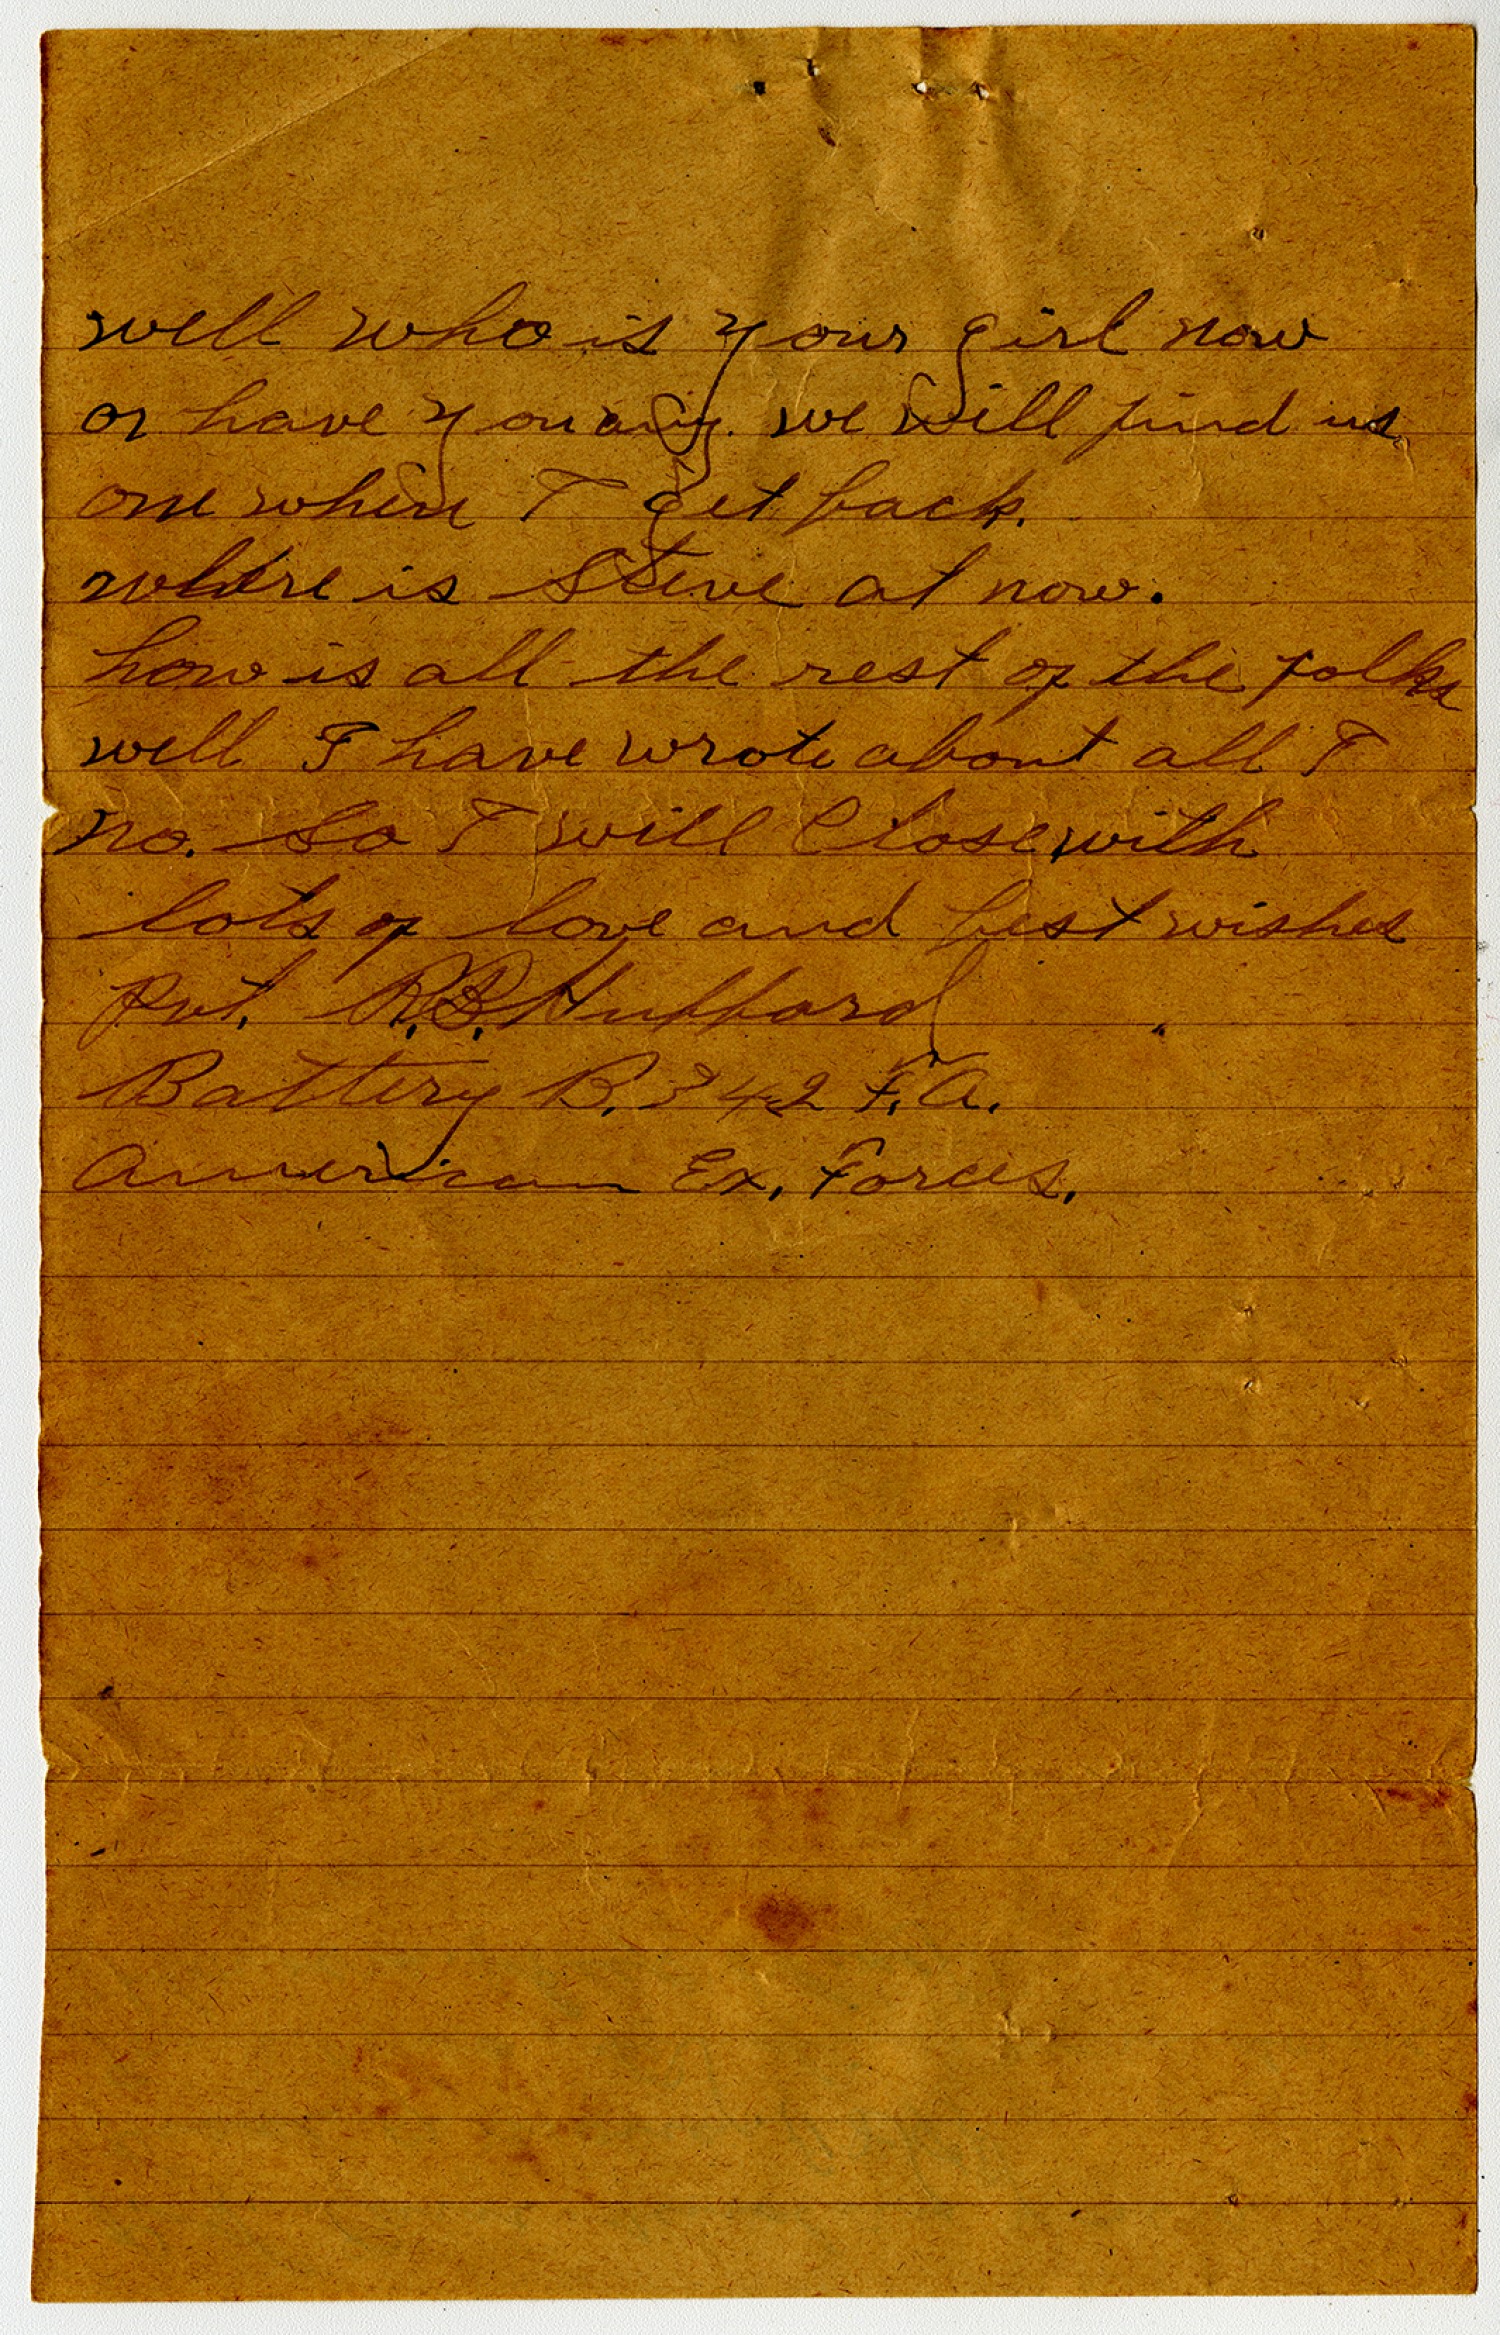 well who is your girl now
or have you any. we will find us
one when I get back.
where is Steve at now.
how is all the rest of the folks
well I have wrote about all I
no. So I will Close with
lots of love and best wishes
Pvt. R.B. Hubbard
Battery B. 342 F.A.
American Ex. Forces.